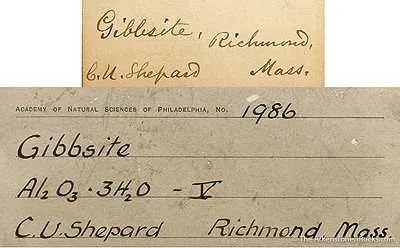 Gibbsite, Richmond,
C.U. Shepard Mass.
ACADEMY OF NATURAL SCIENCES OF PHILADELPHIA, NO. 1986
Gibbsite
Al₂O₃·3H₂O - V
C.U. Shepard Richmond, Mass.